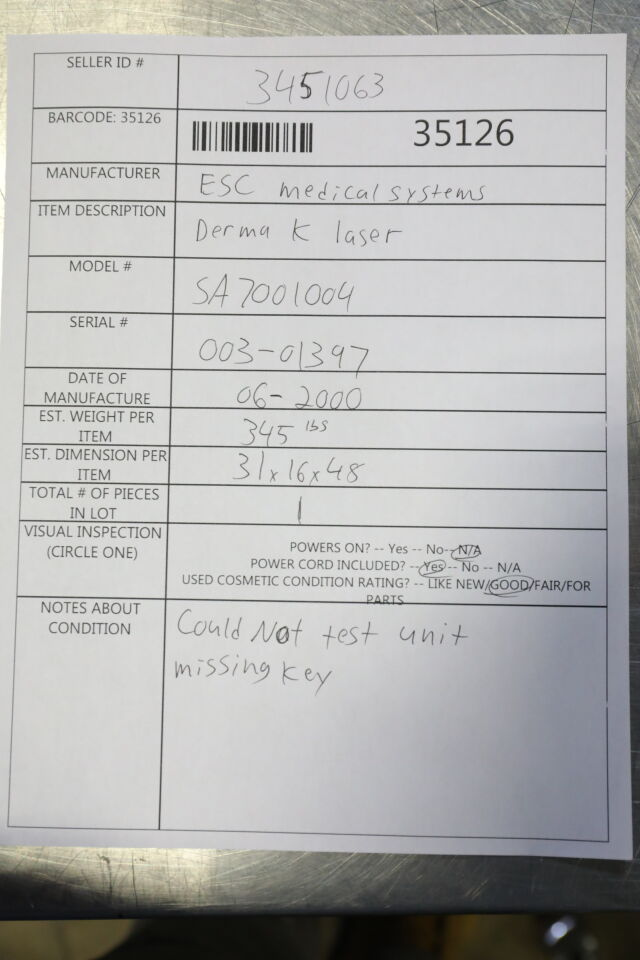 SELLER ID # 3451063
BARCODE: 35126 35126
MANUFACTURER ESC medical systems
ITEM DESCRIPTION Derma K laser
MODEL # SA7001004
SERIAL # 003-01397
DATE OF
MANUFACTURE 06-2000
EST. WEIGHT PER
ITEM 345 lbs
EST. DIMENSION PER
ITEM 31x16x48
TOTAL # OF PIECES
IN LOT 1
VISUAL INSPECTION
(CIRCLE ONE)
POWERS ON? -- Yes -- No-- N/A
POWER CORD INCLUDED? -- Yes -- No -- N/A
USED COSMETIC CONDITION RATING? -- LIKE NEW/GOOD/FAIR/FOR
PARTS
NOTES ABOUT
CONDITION
Could Not test unit
missing key